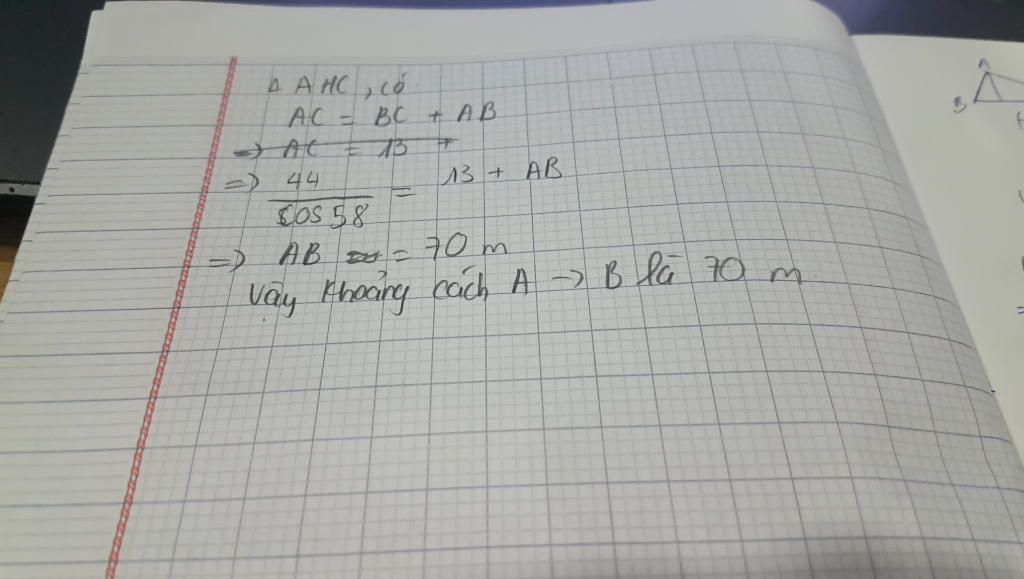 Δ AHC, có
AC = BC + AB
=> AC = 13 +
=> 44 / cos 58 = 13 + AB
=> AB = 70 m
Vậy khoảng cách A -> B là 70 m.
A
B